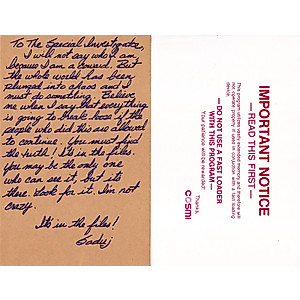 To The Special Investigator,
I will not say who I am
because I am a coward. But
the whole world has been
plunged into chaos and I
must do something. Believe
me when I say that everything
is going to break loose if the
people who did this are allowed
to continue. You must find
the truth! It's in the files.
You may be the only one
who can see it, but it's
there. Look for it. I'm not
crazy.
It's in the files!
Saduj
IMPORTANT NOTICE
— READ THIS FIRST —
This program utilizes vastly extended memory and therefore will
not operate properly if used in conjunction with a fast loading
device.
— DO NOT USE A FAST LOADER
WITH THIS PROGRAM —
Your patience will be rewarded.
Thanks,
COSMI